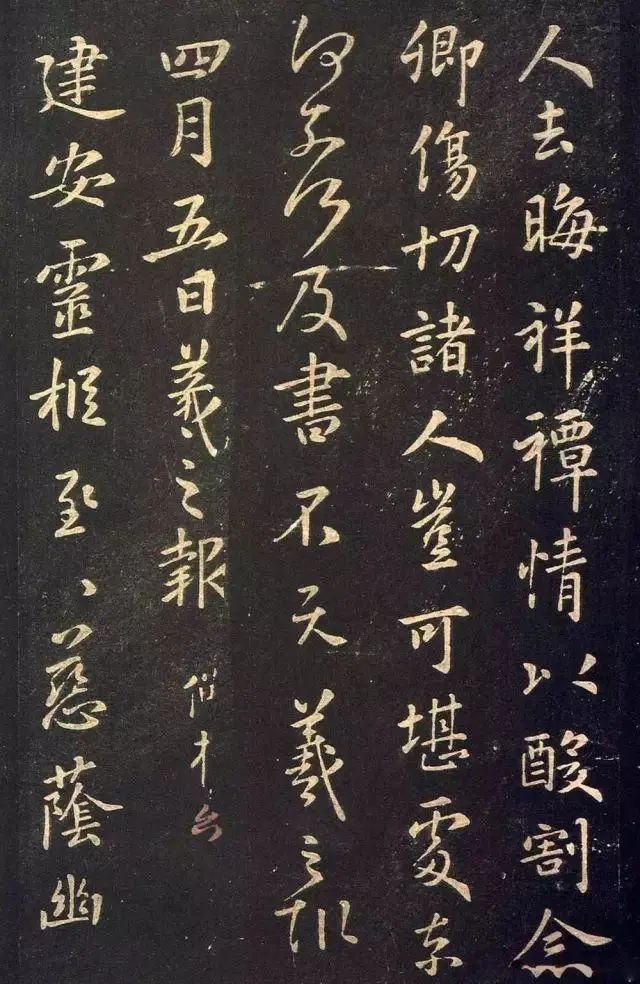 人去晦祥禫情以酸割念
卿傷切諸人豈可堪處奈
何奈何及書不天羲之報
四月五日羲之報
建安靈柩至、慈蔭幽